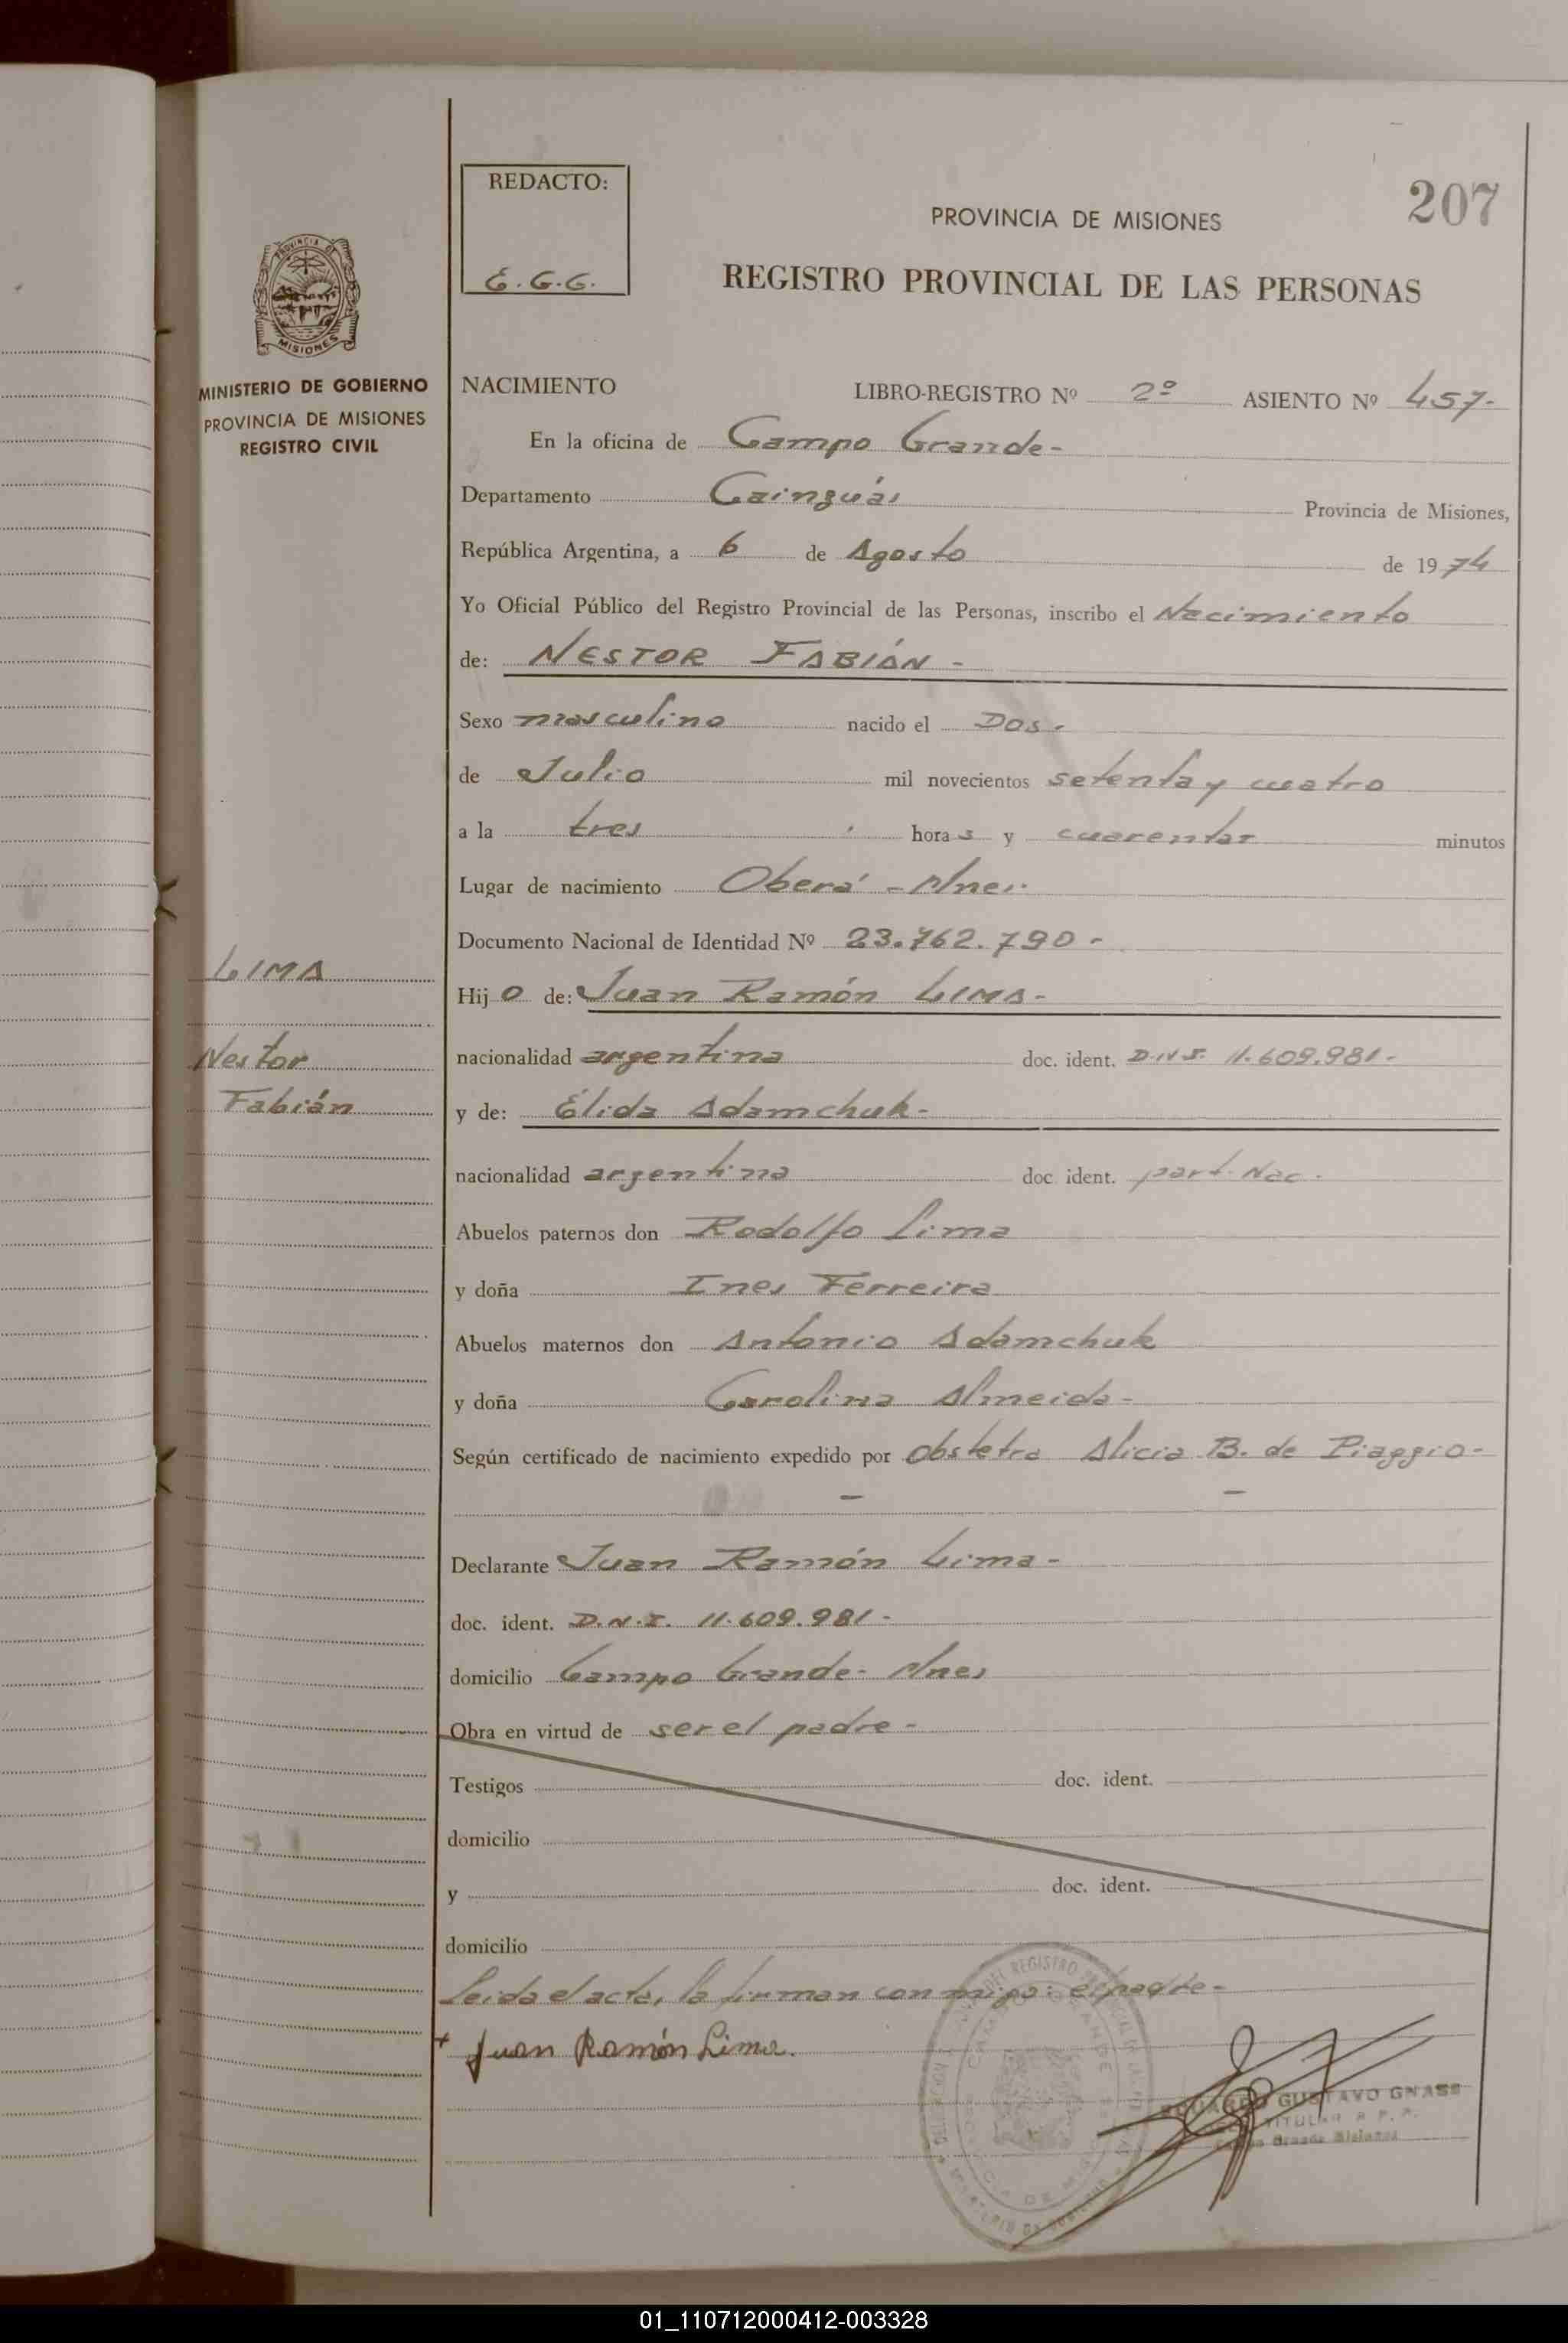 207
REDACTO:
E.G.G.
PROVINCIA DE MISIONES
REGISTRO PROVINCIAL DE LAS PERSONAS
PROVINCIA DE
MISIONES
MINISTERIO DE GOBIERNO
PROVINCIA DE MISIONES
REGISTRO CIVIL
NACIMIENTO LIBRO-REGISTRO Nº 2º ASIENTO Nº 457-
En la oficina de Campo Grande-
Departamento Cainguás Provincia de Misiones,
República Argentina, a 6 de Agosto de 1974
Yo Oficial Público del Registro Provincial de las Personas, inscribo el Nacimiento
de: NESTOR FABIÁN -
Sexo masculino nacido el Dos-
de Julio mil novecientos setenta y cuatro
a la tres hora s y cuarenta minutos
Lugar de nacimiento Oberá - Mnes.
Documento Nacional de Identidad Nº 23.762.790-
LIMA
Hij o de: Juan Ramón LIMA-
Nestor
nacionalidad argentina doc. ident. D.N.I. 11.609.981-
Fabián
y de: Élida Adamchuk-
nacionalidad argentina doc ident. part. Nac.
Abuelos paternos don Rodolfo Lima
y doña Ines Ferreira
Abuelos maternos don Antonio Adamchuk
y doña Carolina Almeida-
Según certificado de nacimiento expedido por Obstetra Alicia B. de Piaggio-
Declarante Juan Ramón Lima-
doc. ident. D.N.I. 11.609.981-
domicilio Campo Grande- Mnes
Obra en virtud de ser el padre-
Testigos doc. ident.
domicilio
y doc. ident.
domicilio
Leida el acta, la firman conmigo: el padre-
+ Juan Ramón Lima.
EDUARDO GUSTAVO GNASS
TITULAR R. P. P.
Campo Grande Misiones
01_110712000412-003328